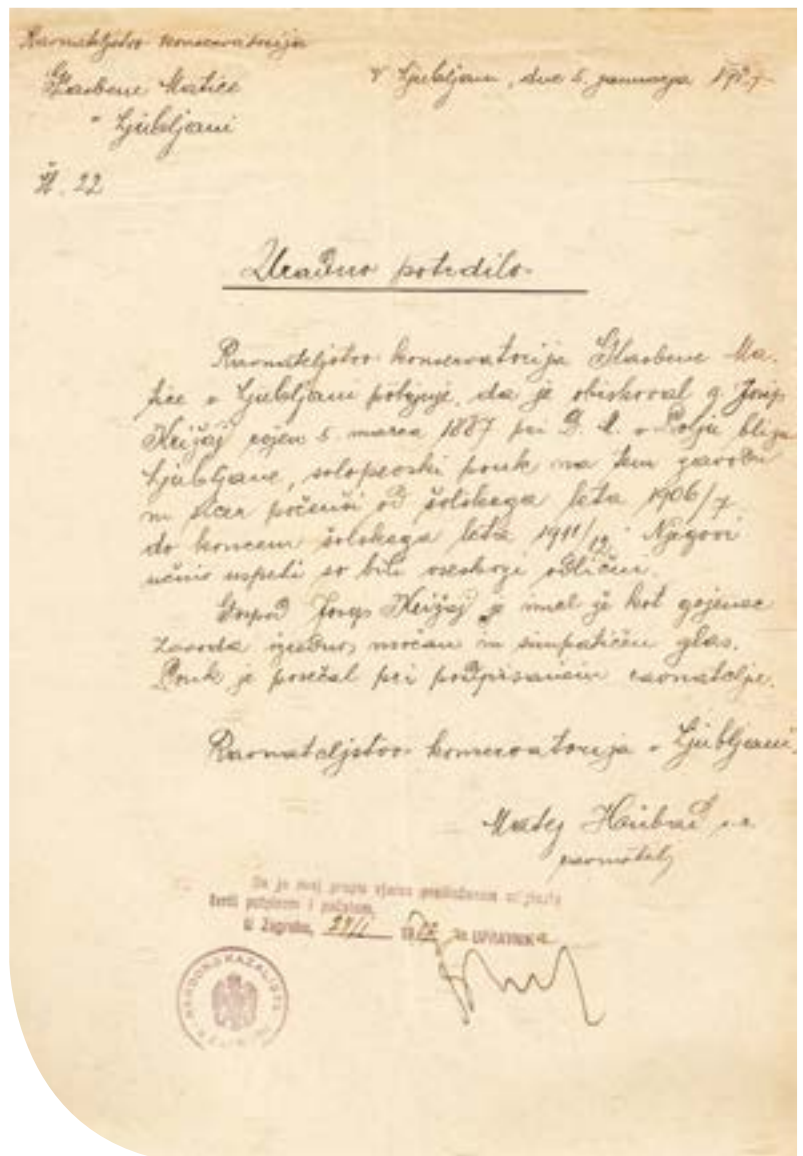 Ravnateljstvo konservatorija
Glasbene Matice
v Ljubljani
v Ljubljani, dne 5. januarja 1927
Št. 22
Uradno potrdilo.
Ravnateljstvo konservatorija Glasbene Ma-
tice v Ljubljani potrjuje, da je obiskoval g. Josip
Križaj rojen 5 marca 1887 pri D. M. v Polju blizu
Ljubljane, solopevski pouk na tem zavodu
in sicer počenši od šolskega leta 1906/7
do koncem šolskega leta 1911/12. Njegovi
učni uspehi so bili vseskozi odlični.
Gospod Josip Križaj je imel je kot gojenec
zavoda izredno močan in simpatičen glas.
Pouk je posečal pri podpisanem ravnatelju.
Ravnateljstvo konservatorija v Ljubljani.
Matej Hubad
ravnatelj
Da je ovaj prepis vjeran
potpisom i pečatom,
U Zagrebu, 19 UPRAVNIK
NAR. KAZALIŠTE